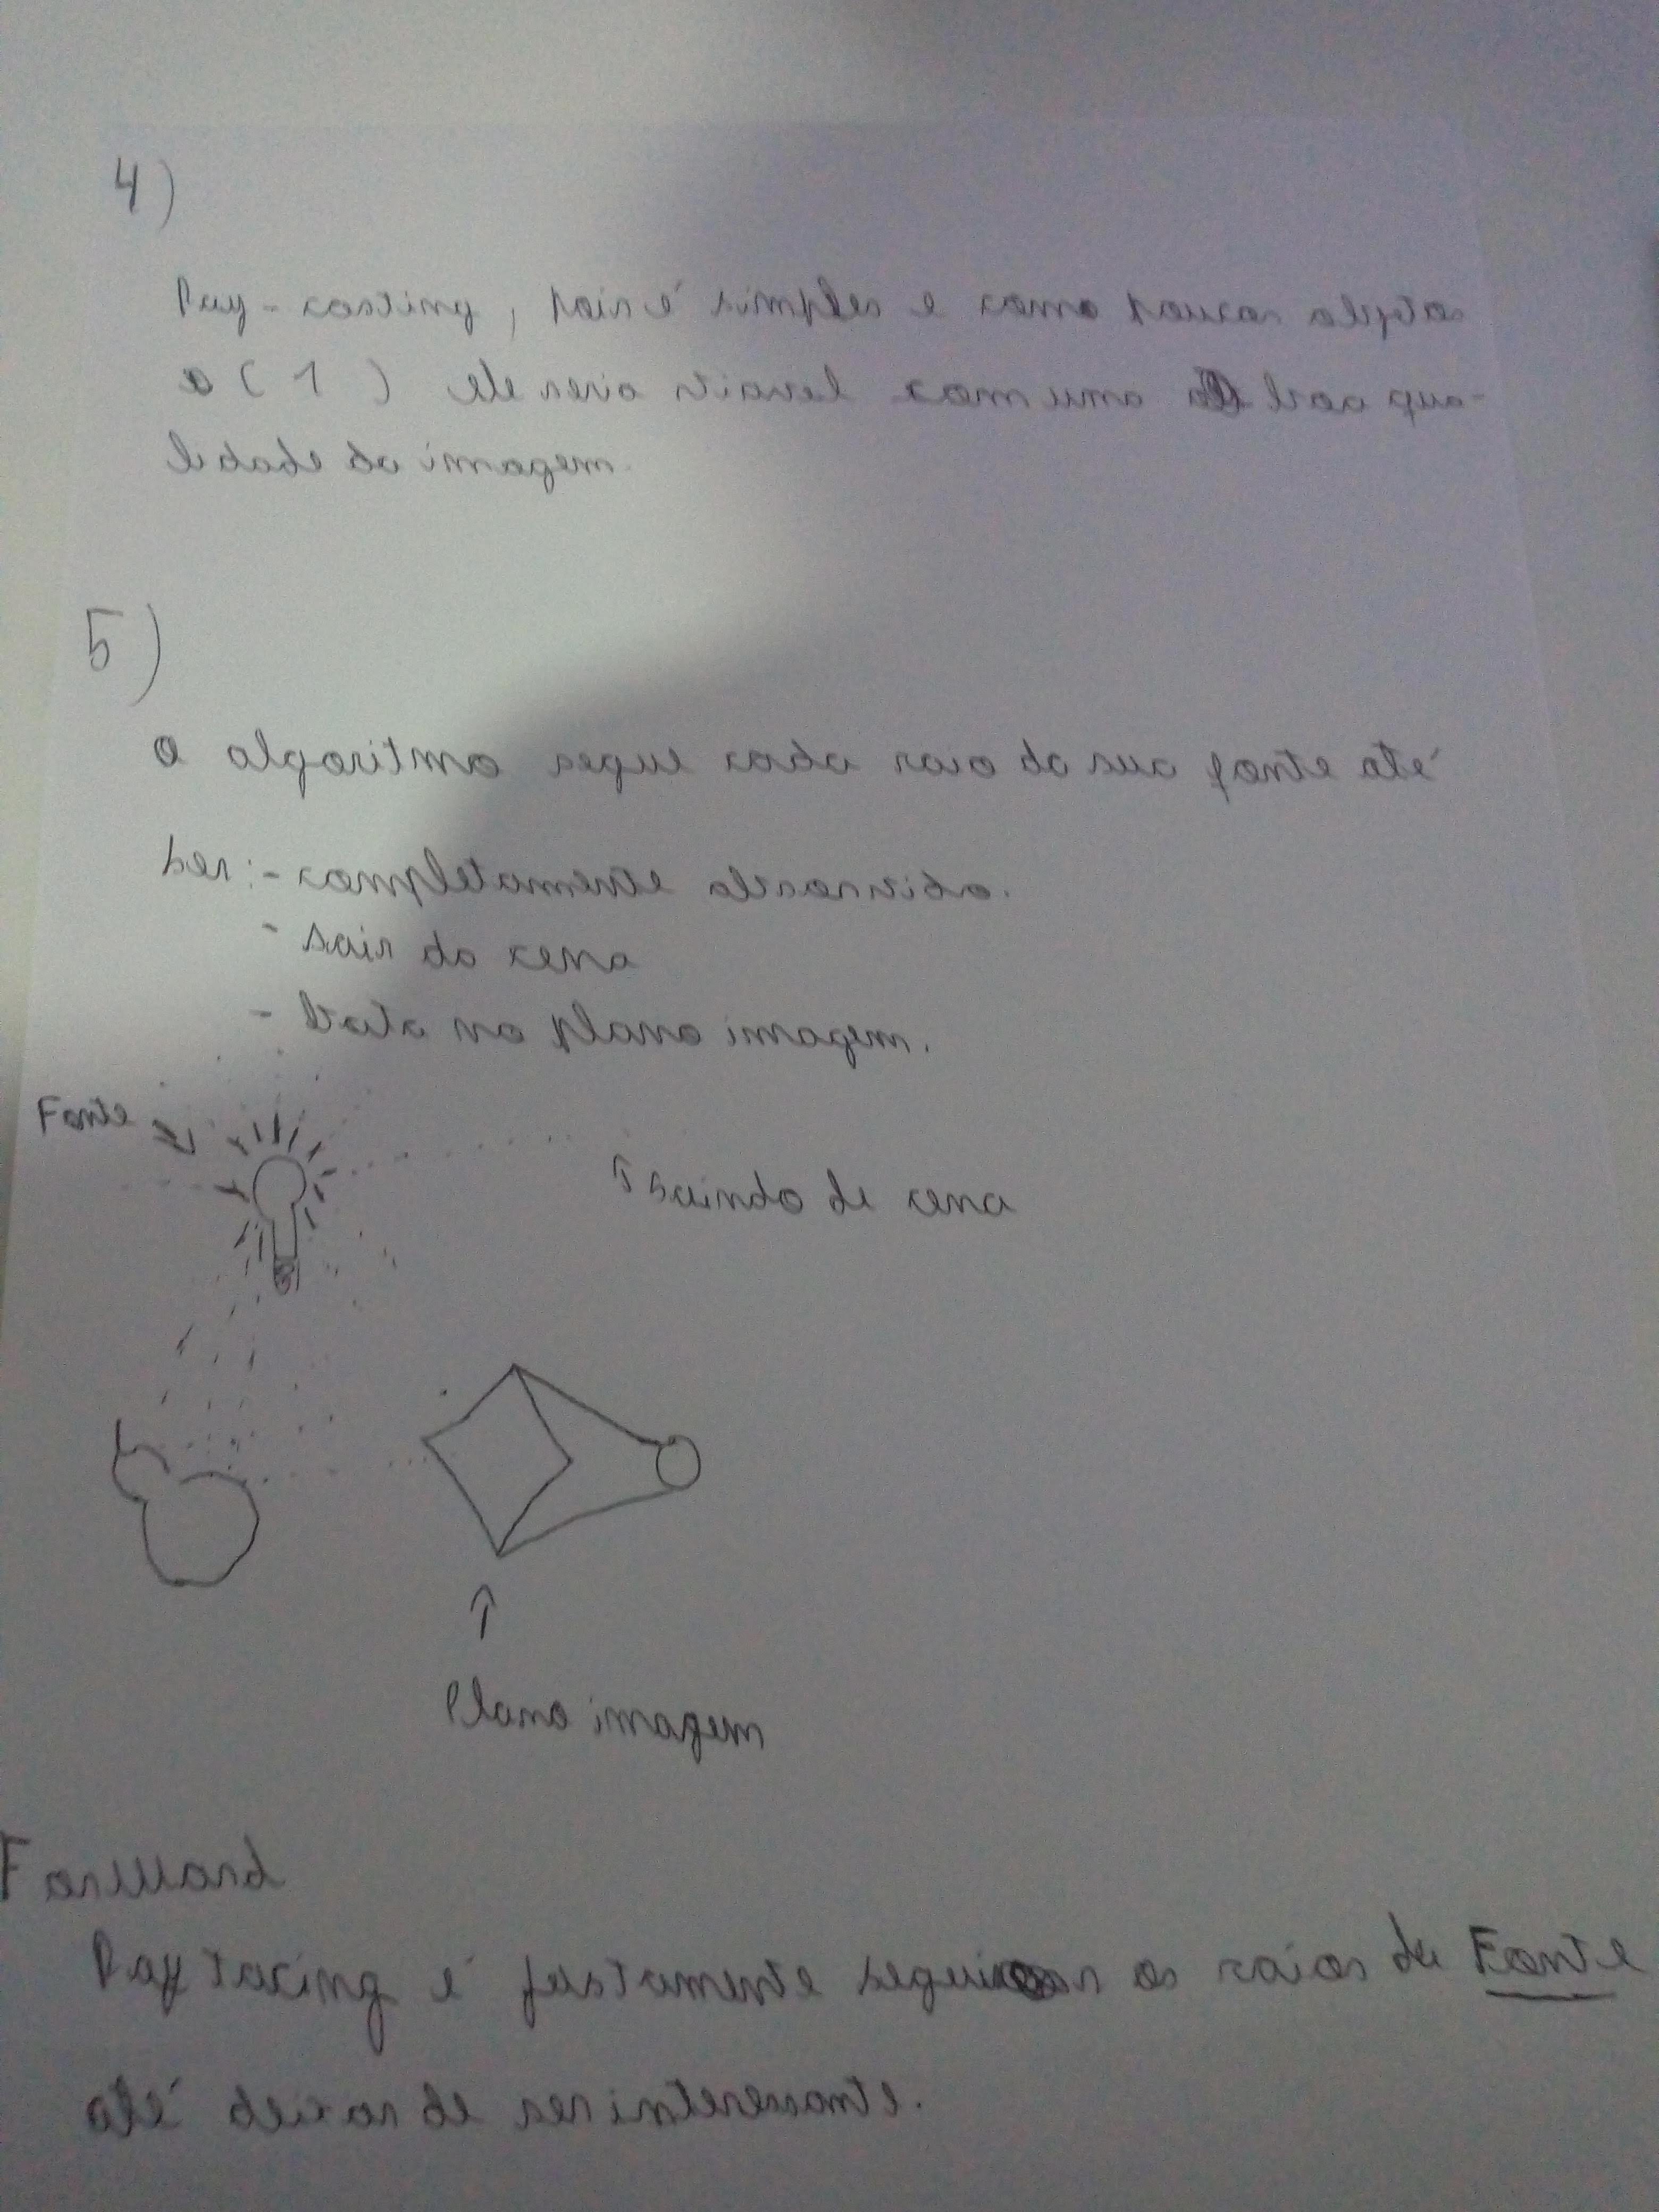 4)
Ray-casting, pois é simples e como poucos objetos
a (1) ele seria viavel com uma boa qua-
lidade da imagem.
5)
O algoritmo segue cada raio da sua fonte até
ser: - completamente absorvido.
- sair da cena
- bata no plano imagem.
Fonte
↑ Saindo de cena
↑
Plano imagem
Forward
Raytracing é justamente seguir os raios da Fonte
até deixar de ser interessante.